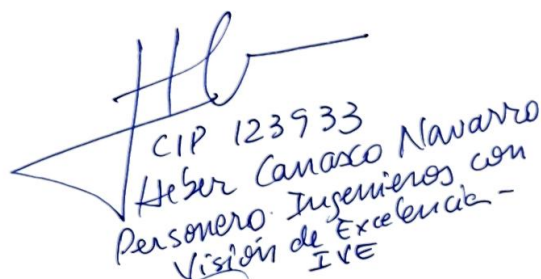 CIP 123933
Heber Carrasco Navarro
Personero. Ingenieros con
Visión de Excelencia -
IVE